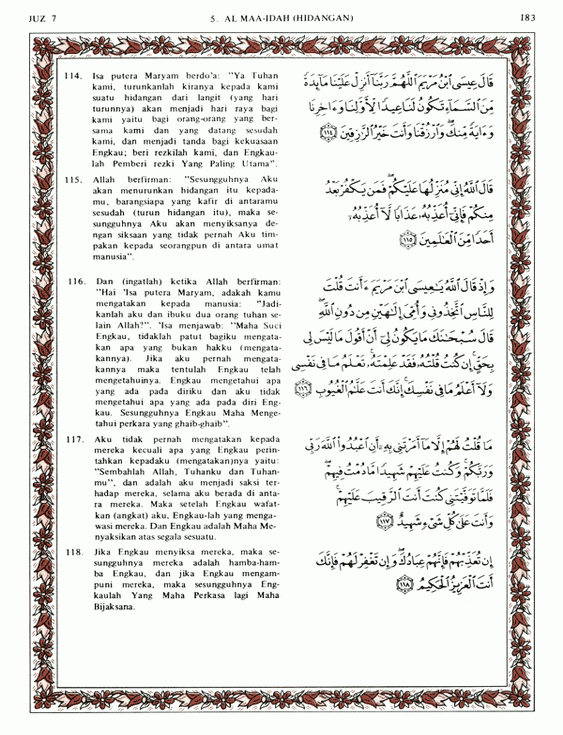 JUZ 7
5. AL MAA-IDAH (HIDANGAN)
183
114. Isa putera Maryam berdo'a: "Ya Tuhan
kami, turunkanlah kiranya kepada kami
suatu hidangan dari langit (yang hari
turunnya) akan menjadi hari raya bagi
kami yaitu bagi orang-orang yang ber-
sama kami dan yang datang sesudah
kami, dan menjadi tanda bagi kekuasaan
Engkau; beri rezkilah kami, dan Engkau-
lah Pemberi rezki Yang Paling Utama".
قَالَ عِيسَى ٱبْنُ مَرْيَمَ ٱللَّهُمَّ رَبَّنَآ أَنزِلْ عَلَيْنَا مَآئِدَةً
مِّنَ ٱلسَّمَآءِ تَكُونُ لَنَا عِيدًا لِّأَوَّلِنَا وَءَاخِرِنَا
وَءَايَةً مِّنكَ وَٱرْزُقْنَا وَأَنتَ خَيْرُ ٱلرَّٰزِقِينَ ١١٤
115. Allah berfirman: "Sesungguhnya Aku
akan menurunkan hidangan itu kepada-
mu, barangsiapa yang kafir di antaramu
sesudah (turun hidangan itu), maka se-
sungguhnya Aku akan menyiksanya de-
ngan siksaan yang tidak pernah Aku tim-
pakan kepada seorangpun di antara umat
manusia".
قَالَ ٱللَّهُ إِنِّى مُنَزِّلُهَا عَلَيْكُمْ فَمَن يَكْفُرْ بَعْدُ
مِنكُمْ فَإِنِّىٓ أُعَذِّبُهُۥ عَذَابًا لَّآ أُعَذِّبُهُۥٓ
أَحَدًا مِّنَ ٱلْعَٰلَمِينَ ١١٥
116. Dan (ingatlah) ketika Allah berfirman:
"Hai 'Isa putera Maryam, adakah kamu
mengatakan kepada manusia: "Jadi-
kanlah aku dan ibuku dua orang tuhan se-
lain Allah?". 'Isa menjawab: "Maha Suci
Engkau, tidaklah patut bagiku mengata-
kan apa yang bukan hakku (mengata-
kannya). Jika aku pernah mengata-
kannya maka tentulah Engkau telah
mengetahuinya. Engkau mengetahui apa
yang ada pada diriku dan aku tidak
mengetahui apa yang ada pada diri Eng-
kau. Sesungguhnya Engkau Maha Menge-
tahui perkara yang ghaib-ghaib".
وَإِذْ قَالَ ٱللَّهُ يَٰعِيسَى ٱبْنَ مَرْيَمَ ءَأَنتَ قُلْتَ
لِلنَّاسِ ٱتَّخِذُونِى وَأُمِّىَ إِلَٰهَيْنِ مِن دُونِ ٱللَّهِ
قَالَ سُبْحَٰنَكَ مَا يَكُونُ لِىٓ أَنْ أَقُولَ مَا لَيْسَ لِى
بِحَقٍّ إِن كُنتُ قُلْتُهُۥ فَقَدْ عَلِمْتَهُۥ تَعْلَمُ مَا فِى نَفْسِى
وَلَآ أَعْلَمُ مَا فِى نَفْسِكَ إِنَّكَ أَنتَ عَلَّٰمُ ٱلْغُيُوبِ ١١٦
117. Aku tidak pernah mengatakan kepada
mereka kecuali apa yang Engkau perin-
tahkan kepadaku (mengatakan)nya yaitu:
"Sembahlah Allah, Tuhanku dan Tuhan-
mu", dan adalah aku menjadi saksi ter-
hadap mereka, selama aku berada di anta-
ra mereka. Maka setelah Engkau wafat-
kan (angkat) aku, Engkau-lah yang menga-
wasi mereka. Dan Engkau adalah Maha Me-
nyaksikan atas segala sesuatu.
مَا قُلْتُ لَهُمْ إِلَّا مَآ أَمَرْتَنِى بِهِۦٓ أَنِ ٱعْبُدُوا۟ ٱللَّهَ رَبِّى
وَرَبَّكُمْ وَكُنتُ عَلَيْهِمْ شَهِيدًا مَّا دُمْتُ فِيهِمْ
فَلَمَّا تَوَفَّيْتَنِى كُنتَ أَنتَ ٱلرَّقِيبَ عَلَيْهِمْ
وَأَنتَ عَلَىٰ كُلِّ شَىْءٍ شَهِيدٌ ١١٧
118. Jika Engkau menyiksa mereka, maka se-
sungguhnya mereka adalah hamba-ham-
ba Engkau, dan jika Engkau mengam-
puni mereka, maka sesungguhnya Eng-
kaulah Yang Maha Perkasa lagi Maha
Bijaksana.
إِن تُعَذِّبْهُمْ فَإِنَّهُمْ عِبَادُكَ وَإِن تَغْفِرْ لَهُمْ فَإِنَّكَ
أَنتَ ٱلْعَزِيزُ ٱلْحَكِيمُ ١١٨